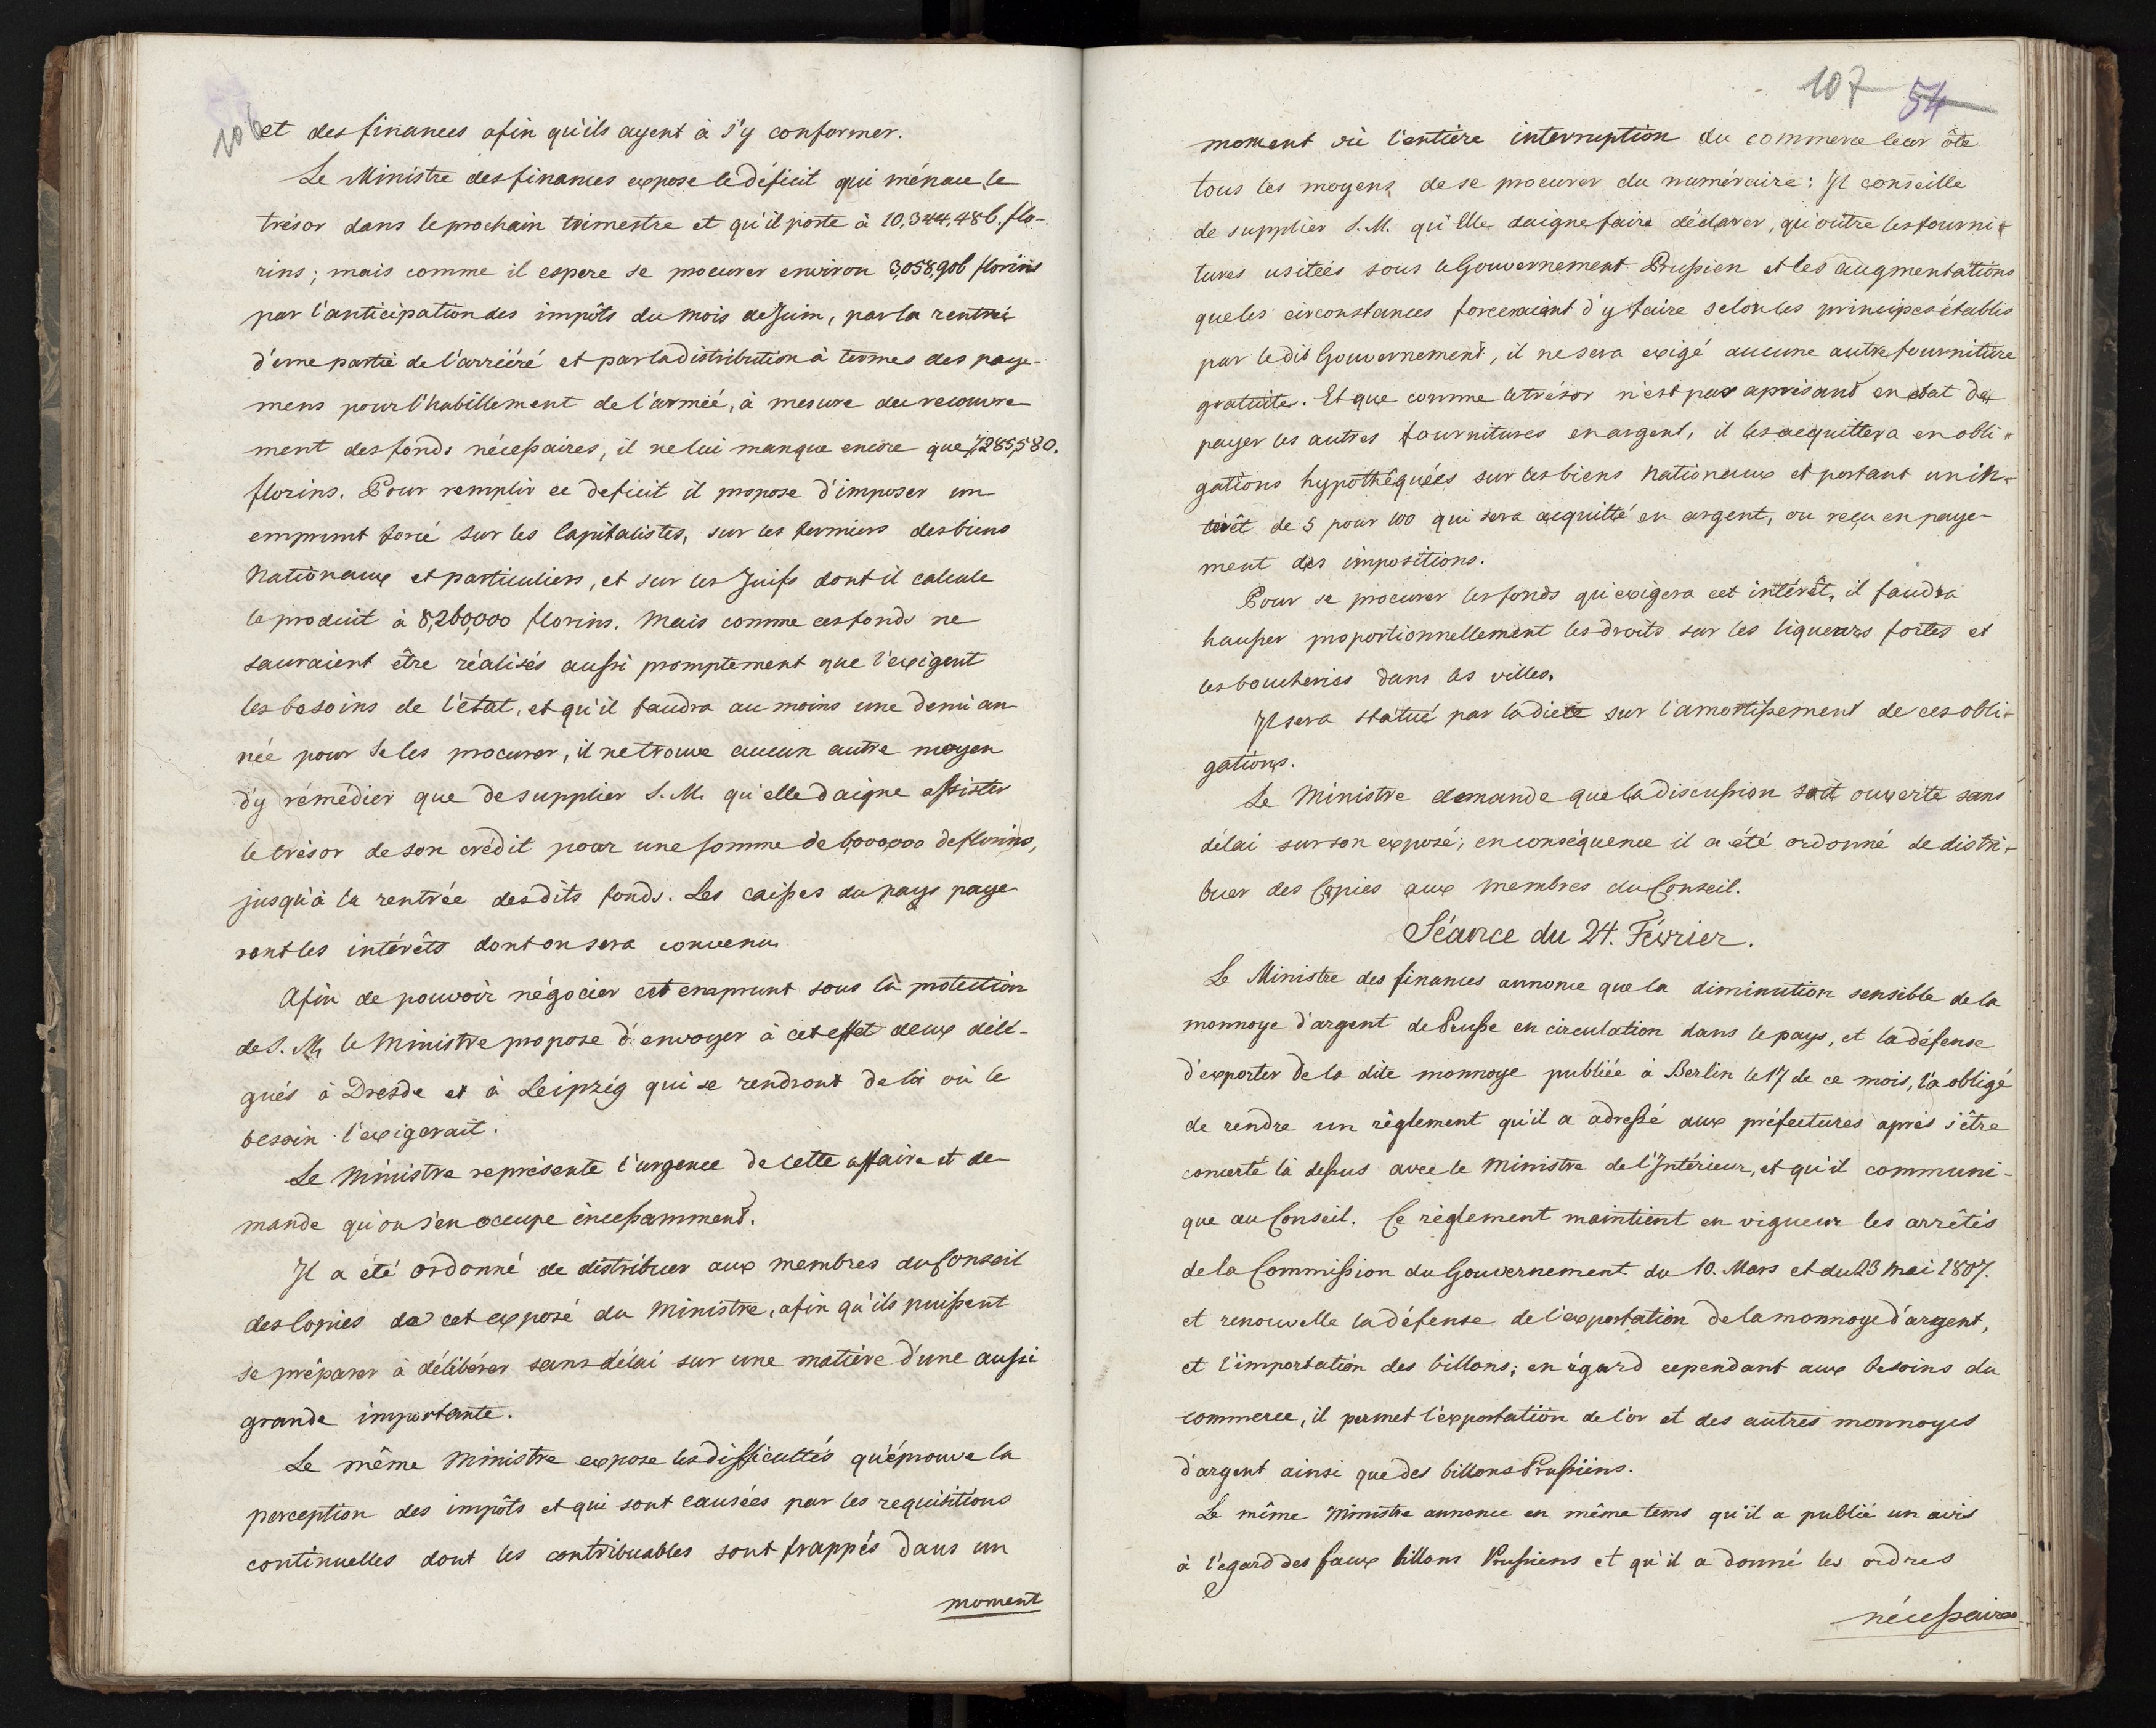 106
et des finances afin qu'ils ayent à s'y conformer.
Le Ministre des finances expose le déficit qui ménace le
trésor dans le prochain trimestre et qu'il porte à 10,344,486. flo-
rins; mais comme il espere se procurer environ 3,058,906 florins
par l'anticipation des impôts du mois de Juin, par la rentrée
d'une partie de l'arriéré et par la distribution à termes des paye-
mens pour l'habillement de l'armée, à mesure du recouvre
ment des fonds nécessaires, il ne lui manque encore que 7,285,580.
florins. Pour remplir ce deficit il propose d'imposer un
emprunt forcé sur les Capitalistes, sur les fermiers des biens
Nationaux et particuliers, et sur les Juifs dont il calcule
le produit à 8,260,000 florins. Mais comme ces fonds ne
sauraient être réalisés aussi promptement que l'exigent
les besoins de l'état, et qu'il faudra au moins une demi an
née pour se les procurer, il ne trouve aucun autre moyen
d'y rémédier que de supplier S. M. qu'elle daigne assister
le trésor de son crédit pour une somme de 6,000,000 de florins,
jusqu'à la rentrée desdits fonds. Les caisses du pays paye
ront les intérêts dont on sera convenu.
Afin de pouvoir négocier cet emprunt sous la protection
de S. M. le Ministre propose d'envoyer à cet effet deux délé-
gués à Dresde et à Leipzig qui se rendront de là où le
besoin l'exigerait.
Le Ministre représente l'urgence de cette affaire et de
mande qu'on s'en occupe incessamment.
Il a été ordonné de distribuer aux membres du Conseil
des Copies de cet exposé du Ministre, afin qu'ils puissent
se préparer à délibérer sans délai sur une matière d'une aussi
grande importante.
Le même Ministre expose les difficultés qu'éprouve la
perception des impôts et qui sont causées par les requisitions
continuelles dont les contribuables sont frappés dans un
moment
107 54
moment où l'entière interruption du commerce leur ôte
tous les moyens de se procurer du numéraire: Il conseille
de supplier S. M. qu'Elle daigne faire déclarer, qu'outre les fourni-
tures usitées sous le Gouvernement Prussien et les augmentations
que les circonstances forceraient d'y faire selon les principes établis
par le dit Gouvernement, il ne sera exigé aucune autre fourniture
gratuite. Et que comme le trésor n'est pas aprésant en état de
payer les autres fournitures en argent, il les acquittera en obli-
gations hypothéquées sur les biens Nationaux et portant un in-
térêt de 5 pour 100 qui sera acquitté en argent, ou reçu en paye-
ment des impositions.
Pour se procurer les fonds qu'exigera cet intérêt, il faudra
hausser proportionnellement les droits sur les liqueurs fortes et
les boucheries dans les villes.
Il sera statué par la diete sur l'amortissement de ces obli-
gations.
Le Ministre demande que la discussion soit ouverte sans
délai sur son exposé; en conséquence il a été ordonné de distri-
buer des Copies aux membres du Conseil.
Séance du 24. Février.
Le Ministre des finances annonce que la diminution sensible de la
monnoye d'argent de Prusse en circulation dans le pays, et la défense
d'exporter de la dite monnoye publiée à Berlin le 17 de ce mois, l'a obligé
de rendre un règlement qu'il a adressé aux préfectures après s'être
concerté là dessus avec le Ministre de l'Intérieur, et qu'il communi-
que au Conseil. Ce règlement maintient en vigueur les arrêtés
de la Commission du Gouvernement du 10. Mars et du 23 Mai 1807.
et renouvelle la défense de l'exportation de la monnoye d'argent,
et l'importation des billons; en égard cependant aux besoins du
commerce, il permet l'exportation de l'or et des autres monnoyes
d'argent ainsi que des billons Prussiens.
Le même Ministre annonce en même tems qu'il a publié un avis
à l'egard des faux billons Prussiens et qu'il a donné les ordres
nécessaires